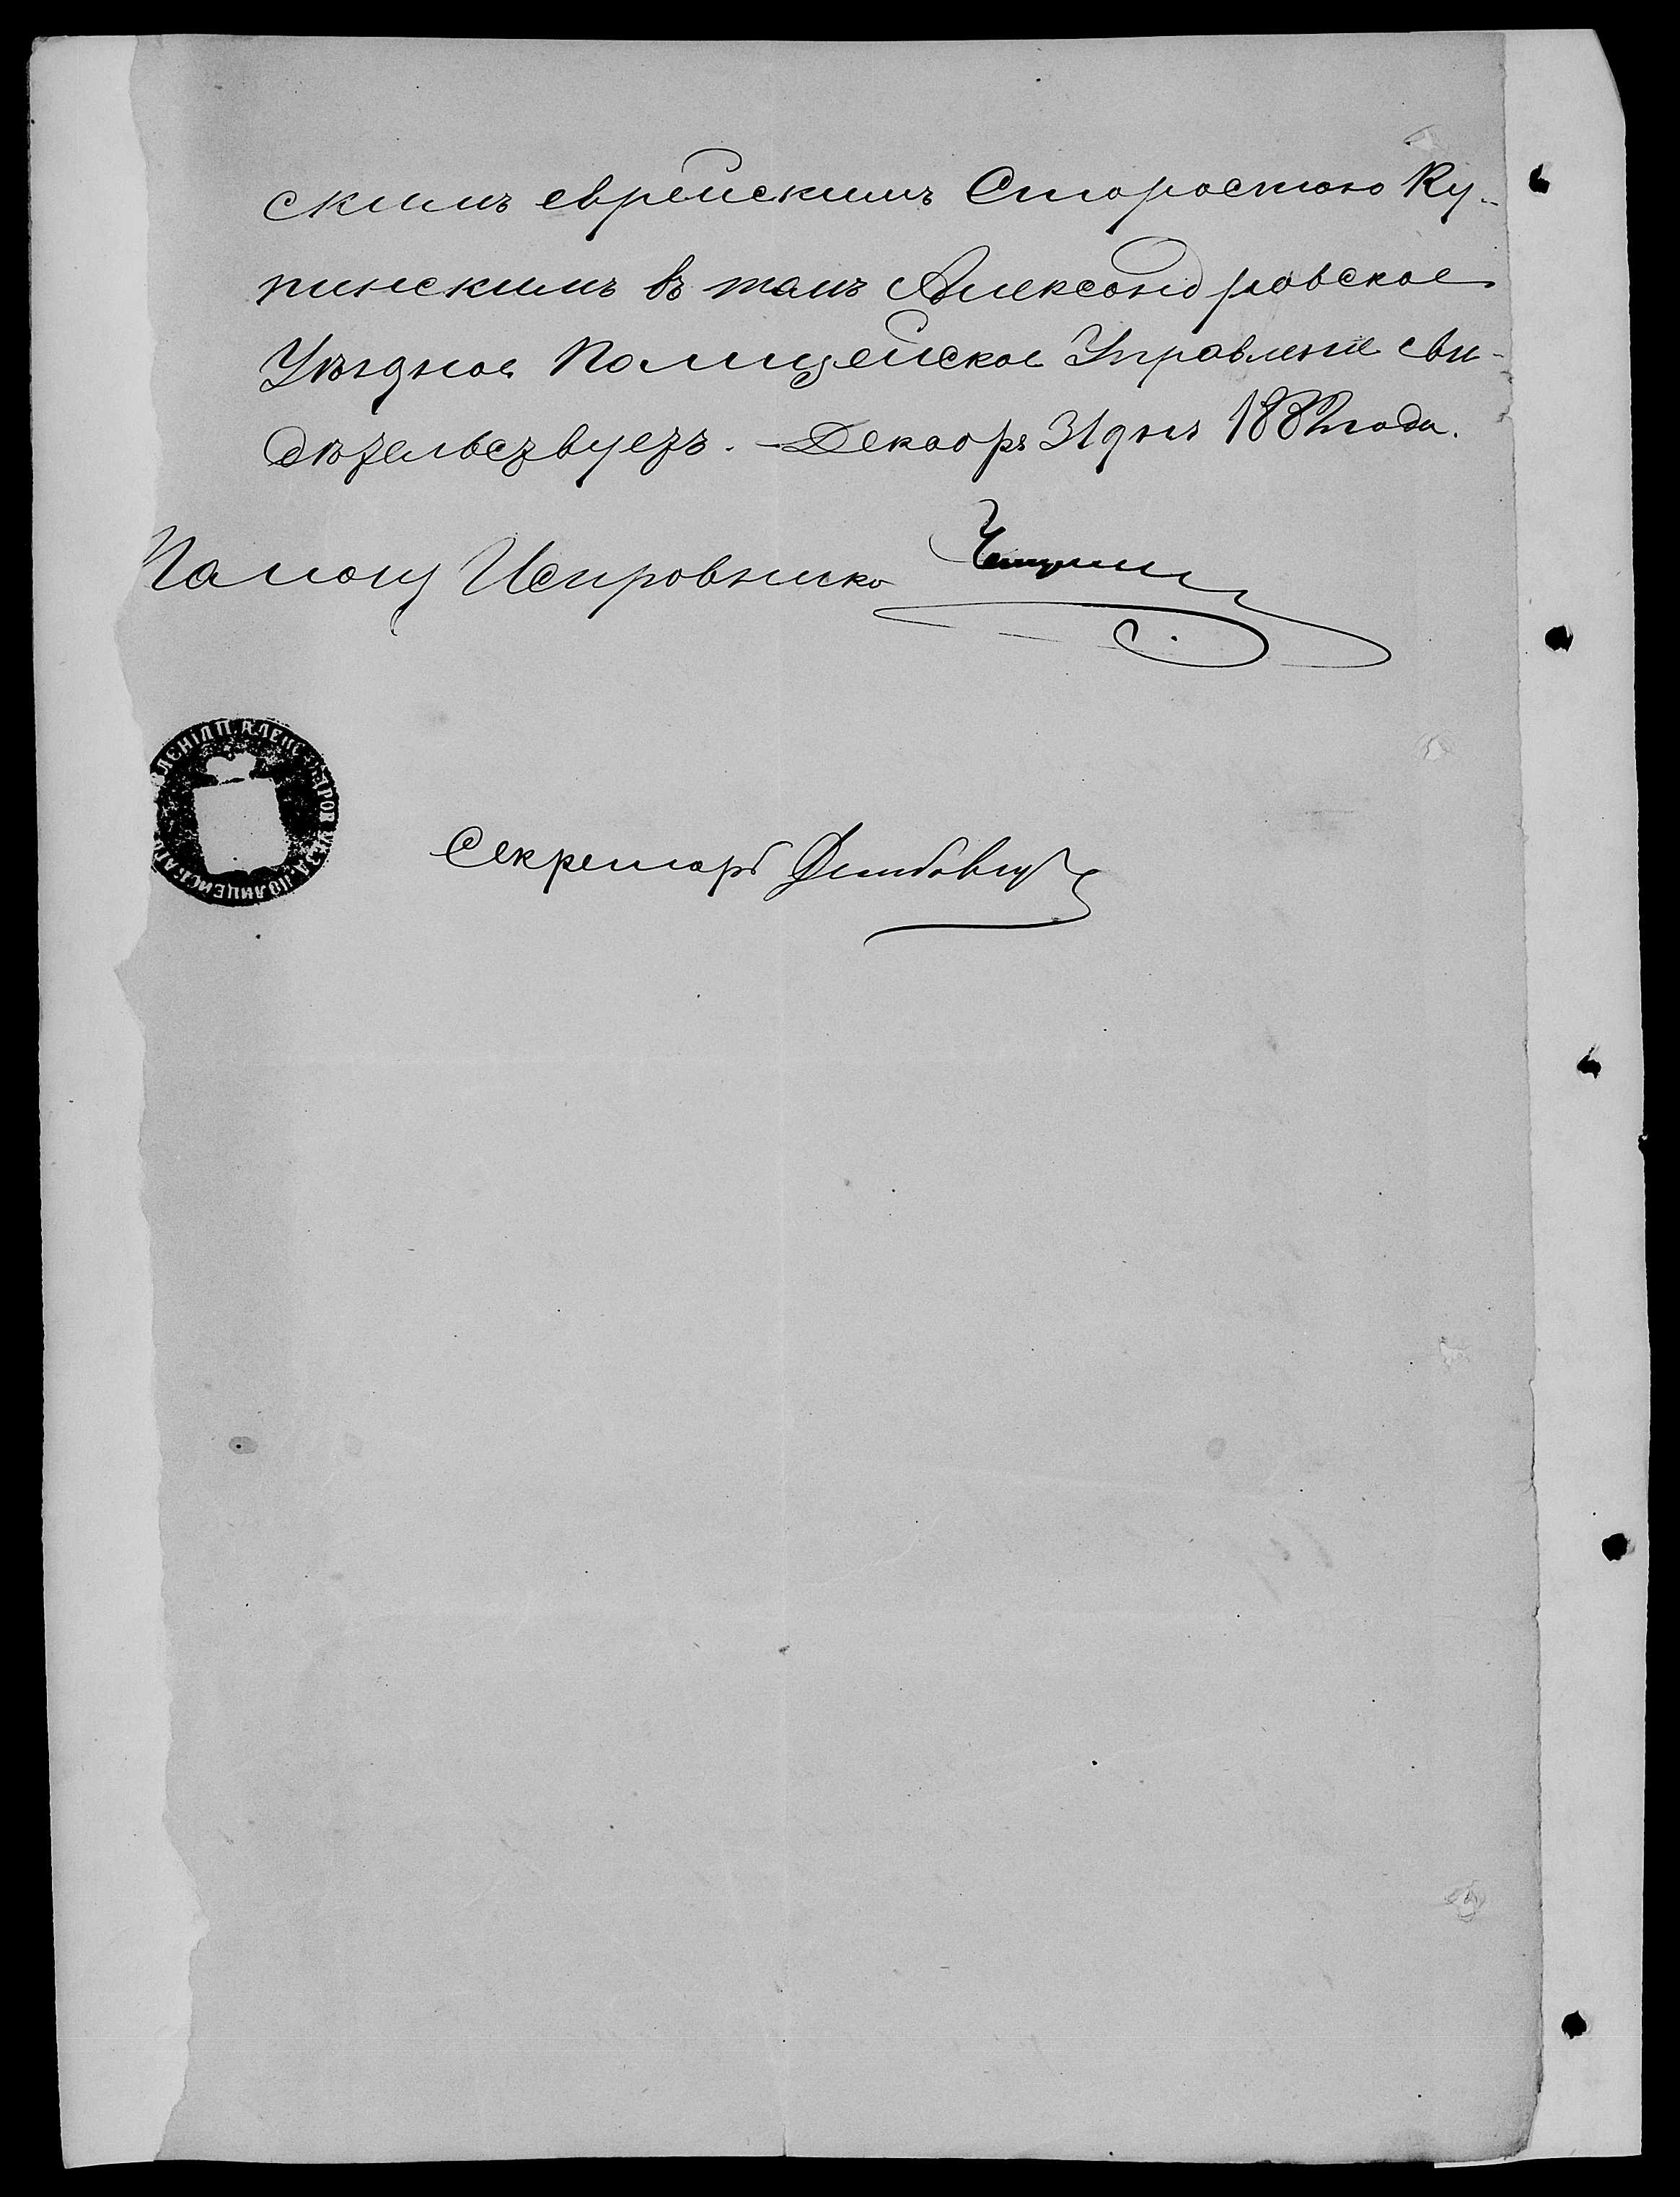 скимъ еврейскимъ Старостою Ку-
пинскимъ въ томъ Александровское
Уѣздное Полицейское Управленіе сви-
дѣтельствуетъ. — Декабрь 31 дня 1882 года.
Помощ Исправника
Секретарь